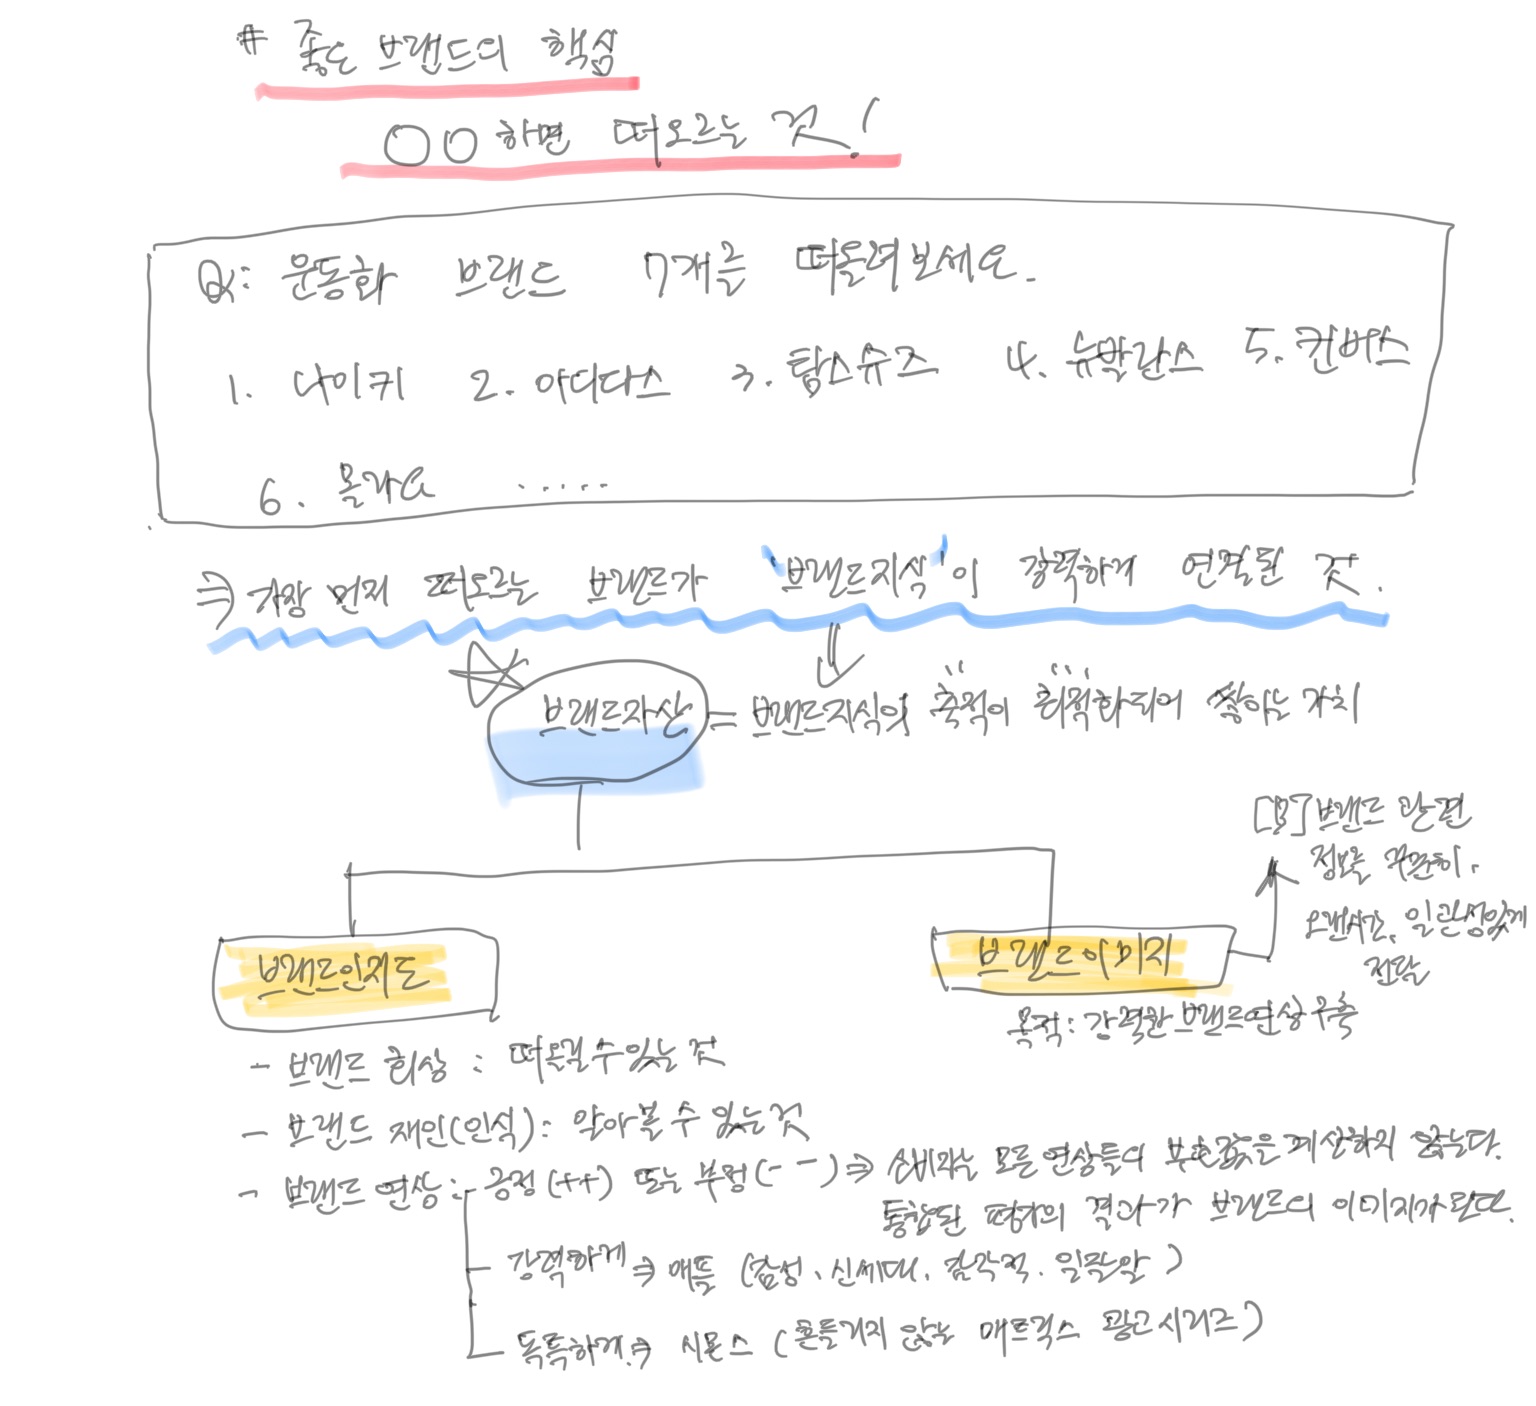 # 좋은 브랜드의 핵심
○○하면 떠오르는 것!
Q: 운동화 브랜드 7개를 떠올려보세요.
1. 나이키 2. 아디다스 3. 탐스슈즈 4. 뉴발란스 5. 컨버스
6. 몰라요 .....
⇒ 가장 먼저 떠오르는 브랜드가 '브랜드지식'이 강력하게 연결된 것.
브랜드자산 = 브랜드지식의 축적이 최적화되어 쌓이는 가치
[B] 브랜드 관련
정보를 꾸준히,
오랜시간, 일관성있게
전달
브랜드인지도
브랜드이미지
목적: 강력한 브랜드연상 구축
- 브랜드 회상 : 떠올릴 수 있는 것
- 브랜드 재인(인식) : 알아볼 수 있는 것
- 브랜드 연상 : 긍정(++) 또는 부정(--) ⇒ 소비자는 모든 연상들의 부호값을 계산하지 않는다.
통합된 평가의 결과가 브랜드의 이미지가 된다.
강력하게 ⇒ 애플 (감성, 신세대, 감각적,
독특하게 ⇒ 시몬스 (흔들리지 않는 매트릭스 광고시리즈)